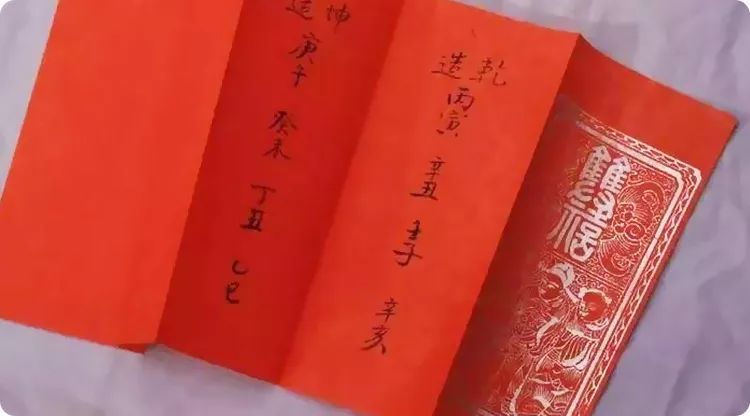 雙福
乾造
丙寅
辛丑
壬子
辛亥
坤造
庚午
癸未
丁丑
乙巳